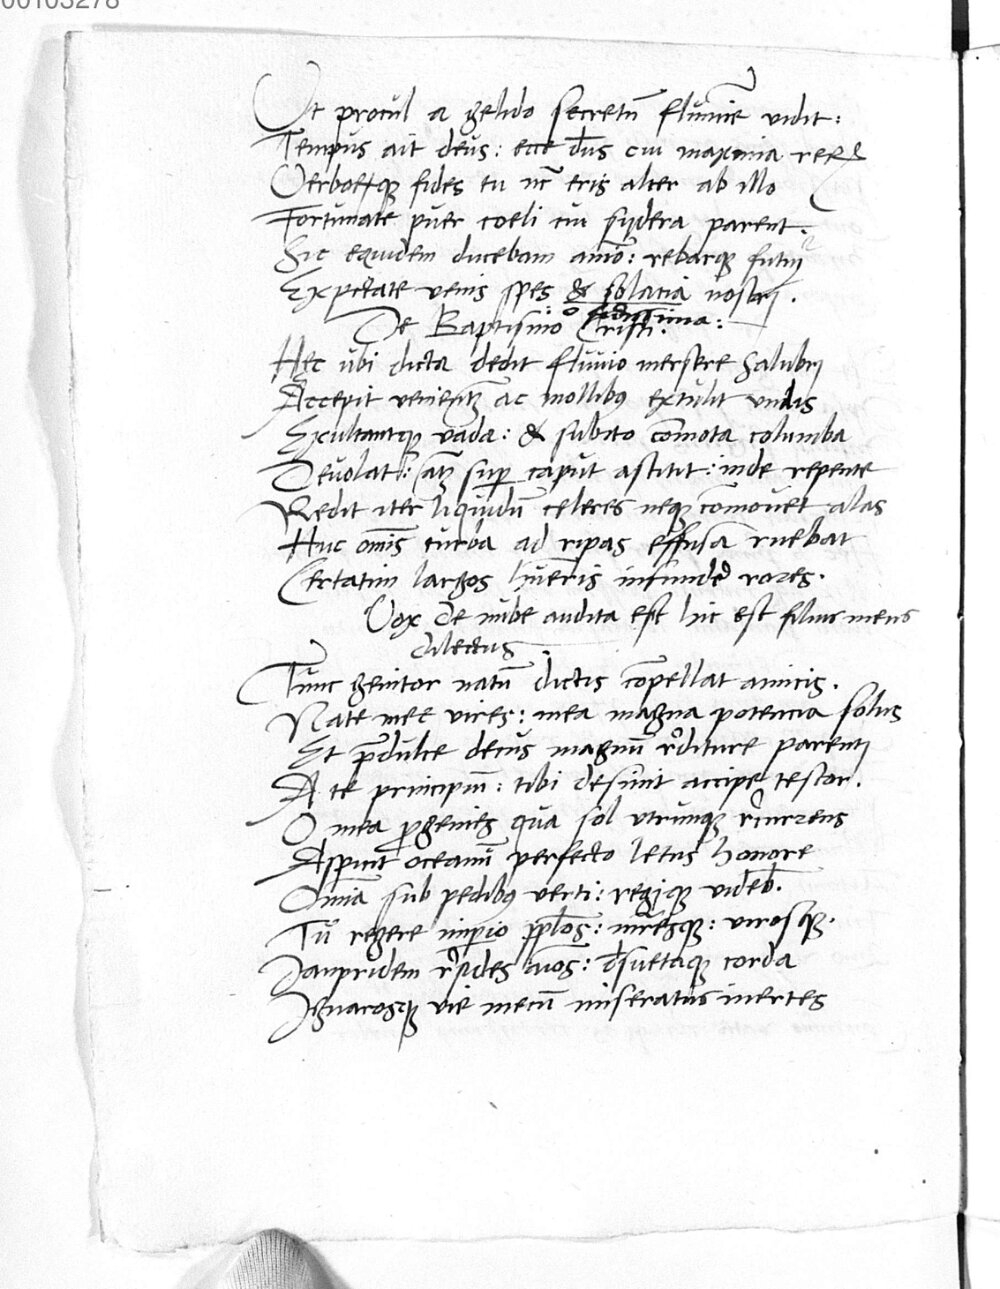 00103278
Ut procul a gelido secretū flumīe vidit:
Tempus ait deus: ecce d̄us cui maxima reꝝ
Verborꝗ fides tu nc̄ eris alter ab illo
Fortunate puer coeli cui sydera parent.
Sic equidem ducebam aīo: rebarꝗ futuꝝ
Expectate venis spes & solatia nostri.
o fidissima:
De Baptismo Cristi.
Hęc ubi dicta dedit fluvio mersere salubri
Accepit venientē ac mollibꝰ extulit undis
Exultantꝗ vada: & subito com̄ota columba
Devolat: sup̄ caput astitit: inde repente
Redit iter liquidū celeres neꝗ com̄ovet alas
Huc om̄is turba ad ripas effusa ruebat
Certatim largos hūeris infunde rores.
Vox de nube audita est hic est filius meus
dilectus
Tunc genitor natū dictis com̄pellat amicis.
Nate meę vires: mea magna potencia solus
Et p̄dulce decus magnū rediture parenti
A te principiū: tibi desinit accipe testor.
O mea ꝓgenies qua sol utrunꝗ recurrens
Aspicit oceanū perfecto letus honore
Omīa sub pedibꝰ verti: regiꝗ videb.
Tu regere imꝑio pp̄los: mr̄esꝗ: virosꝗ.
Janpridem resides aīos: desuetaꝗ corda
Ignarosꝗ vie mecū miseratus inertes